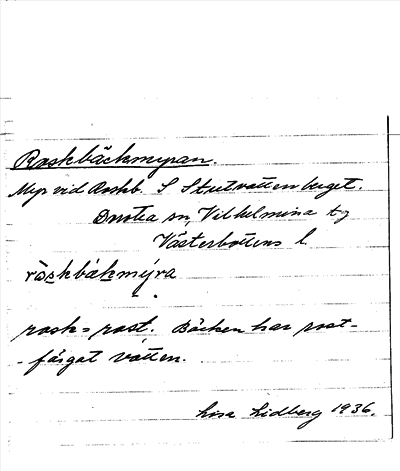 Raskbäckmyran.
Myr vid Raskb. S Stutvattenberget.
Dorotea sn, Vilhelmina tg
Västerbottens l.
ròskbákmýra
rosk = rost. Bäcken har rost-
-färgat vatten.
Lisa Lidberg 1936.